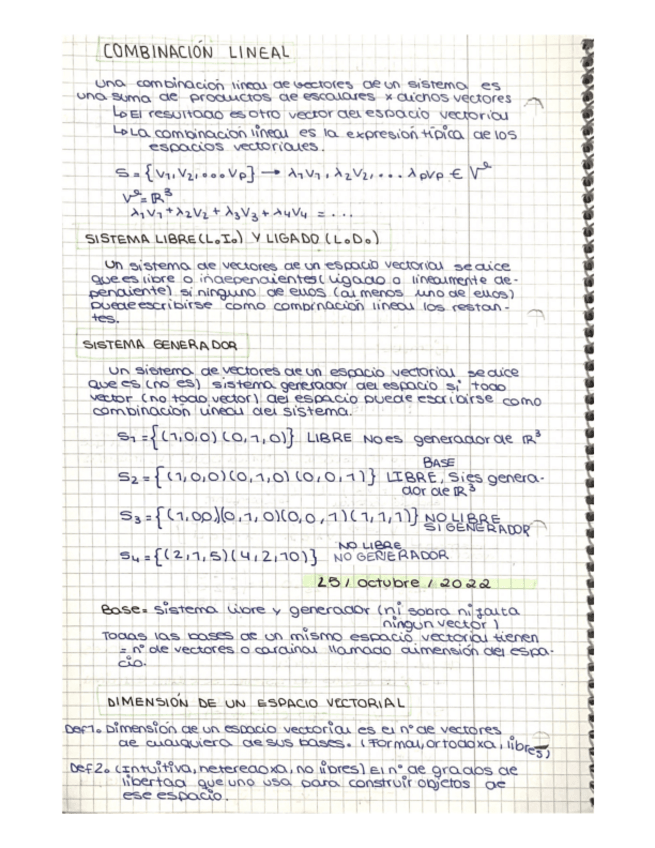 COMBINACIÓN LINEAL
una combinación lineal de vectores de un sistema es
una suma de productos de escalares x dichos vectores
↳ El resultado es otro vector del espacio vectorial
↳ La combinación lineal es la expresión típica de los
espacios vectoriales.
S = {V1, V2, ... Vp} → λ1V1, λ2V2, ... λpVp ∈ Ve
Ve = ℝ3
λ1V1 + λ2V2 + λ3V3 + λ4V4 = ...
SISTEMA LIBRE (L.I.) Y LIGADO (L.D.)
Un sistema de vectores de un espacio vectorial se dice
que es libre o independientes (ligado o linealmente de-
pendiente) si ninguno de ellos (al menos uno de ellos)
puede escribirse como combinación lineal los restan-
tes.
SISTEMA GENERADOR
Un sistema de vectores de un espacio vectorial se dice
que es (no es) sistema generador del espacio si todo
vector (no todo vector) del espacio puede escribirse como
combinación lineal del sistema.
S1 = {(1,0,0) (0,1,0)} LIBRE No es generador de ℝ3
BASE
S2 = {(1,0,0) (0,1,0) (0,0,1)} LIBRE, Si es genera-
dor de ℝ3
S3 = {(1,00)(0,1,0)(0,0,1)(1,1,1)} NO LIBRE
SI GENERADOR
NO LIBRE
S4 = {(2,1,5) (4,2,10)} NO GENERADOR
25 / octubre / 2022
Base = sistema libre y generador (ni sobra ni falta
ningun vector)
Todas las bases de un mismo espacio vectorial tienen
= nº de vectores o cardinal llamado dimensión del espa-
cio.
DIMENSIÓN DE UN ESPACIO VECTORIAL
Def 1. Dimensión de un espacio vectorial es el nº de vectores
de cualquiera de sus bases. (Formal, ortodoxa, libres)
Def 2. (Intuitiva, heteredoxa, no libres) El nº de grados de
libertad que uno usa para construir objetos de
ese espacio.